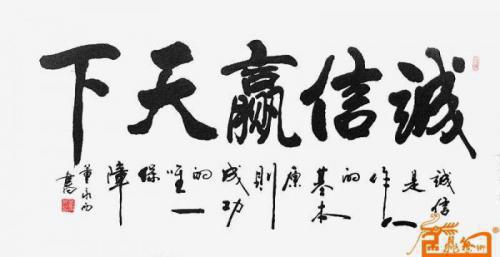 誠信赢天下
誠信是作人的基本原則成功的唯一保障